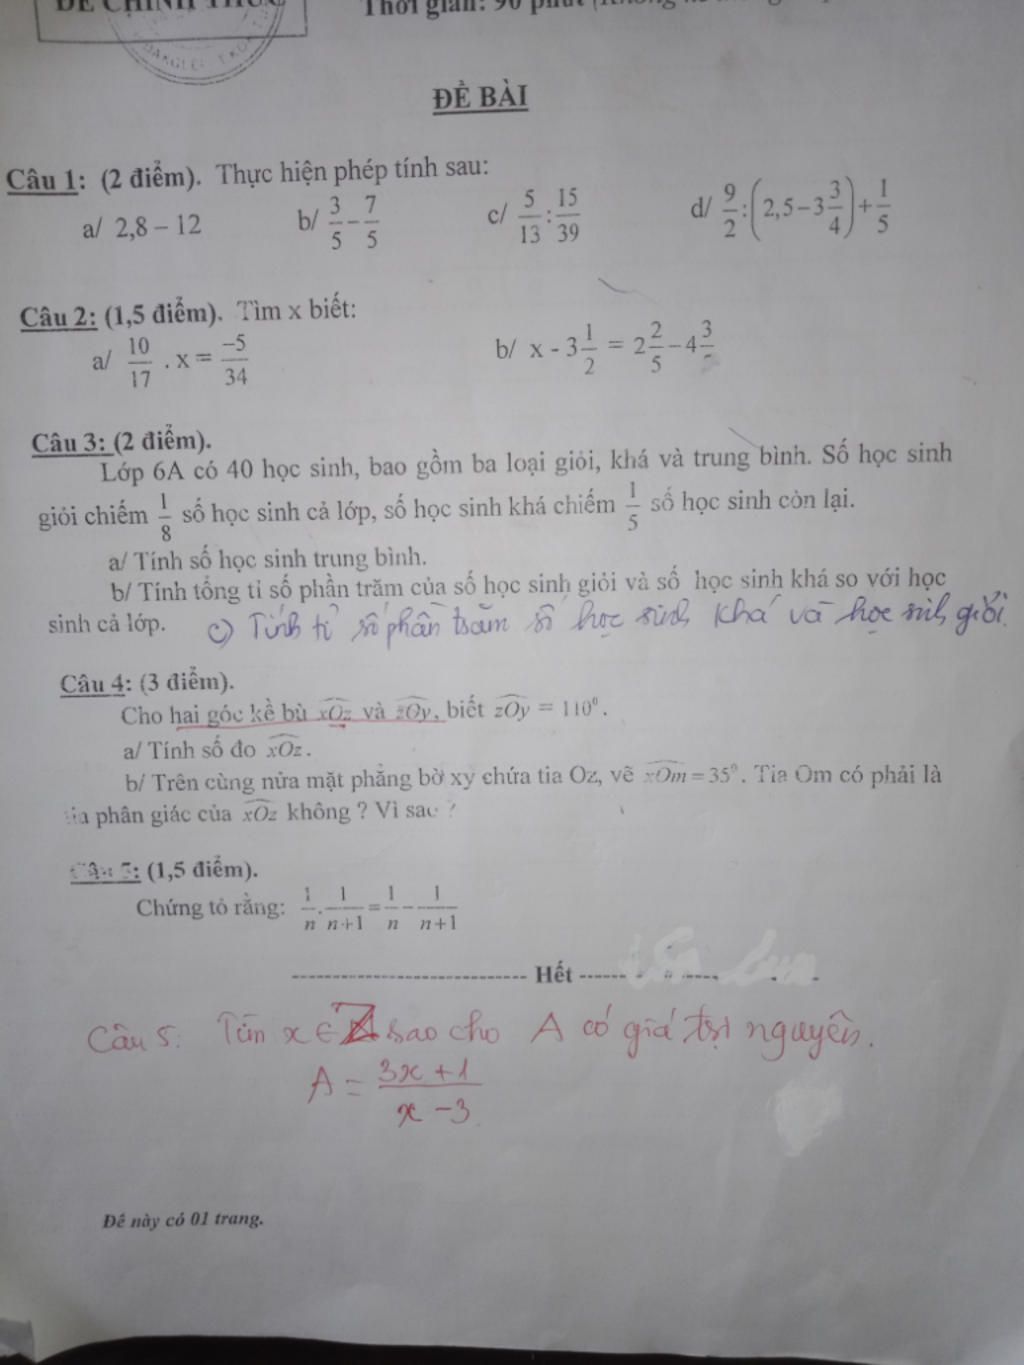 ĐỀ CHÍNH THỨC
Thời gian: 90 phút
ĐỀ BÀI
Câu 1: (2 điểm). Thực hiện phép tính sau:
a/ 2,8 – 12 b/ 3/5 − 7/5 c/ 5/13 : 15/39 d/ 9/2 : (2,5 − 3 3/4) + 1/5
Câu 2: (1,5 điểm). Tìm x biết:
a/ 10/17 . x = −5/34 b/ x - 3 1/2 = 2 2/5 − 4 3/
Câu 3: (2 điểm).
Lớp 6A có 40 học sinh, bao gồm ba loại giỏi, khá và trung bình. Số học sinh
giỏi chiếm 1/8 số học sinh cả lớp, số học sinh khá chiếm 1/5 số học sinh còn lại.
a/ Tính số học sinh trung bình.
b/ Tính tổng tỉ số phần trăm của số học sinh giỏi và số học sinh khá so với học
sinh cả lớp. c) Tính tỉ số phần trăm số học sinh khá và học sinh giỏi.
Câu 4: (3 điểm).
Cho hai góc kề bù xOz và zOy, biết zOy = 110⁰.
a/ Tính số đo xOz.
b/ Trên cùng nửa mặt phẳng bờ xy chứa tia Oz, vẽ xOm = 35⁰. Tia Om có phải là
tia phân giác của xOz không ? Vì sao ?
Câu 5: (1,5 điểm).
Chứng tỏ rằng: 1/n . 1/(n+1) = 1/n − 1/(n+1)
Hết
Câu 5: Tìm x ∈ Z sao cho A có giá trị nguyên.
A = (3x + 1)/(x − 3)
Đề này có 01 trang.